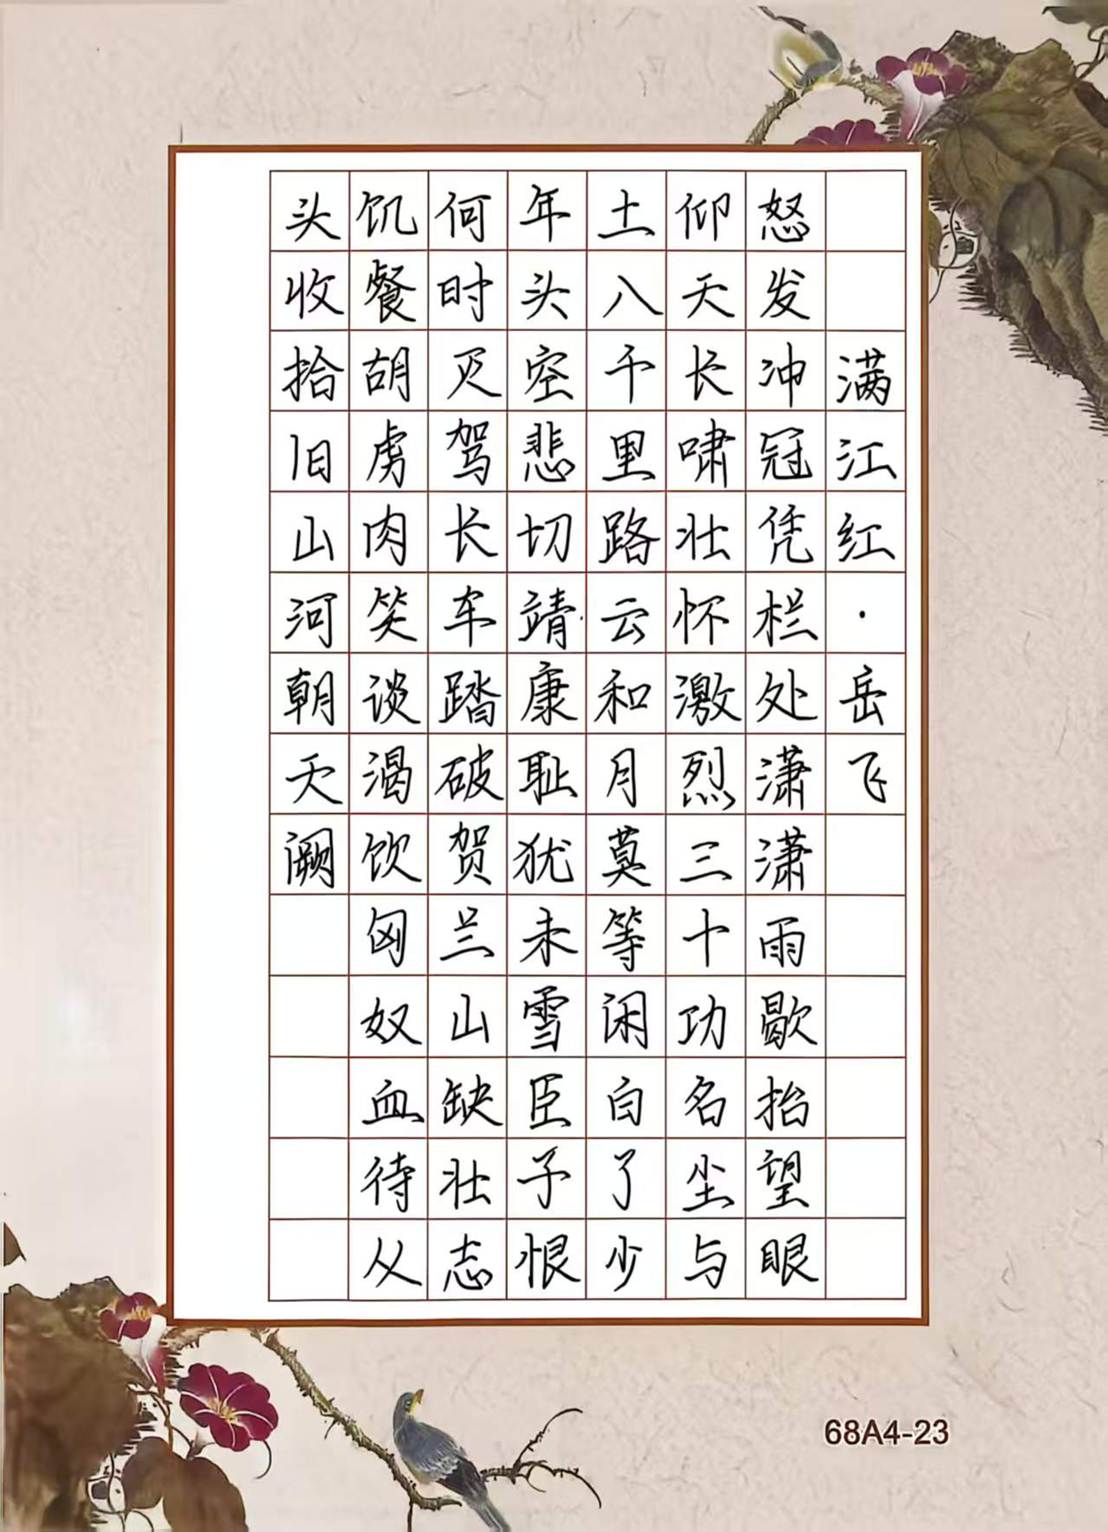 满江红·岳飞
怒发冲冠凭栏处潇潇雨歇抬望眼
仰天长啸壮怀激烈三十功名尘与
土八千里路云和月莫等闲白了少
年头空悲切靖康耻犹未雪臣子恨
何时灭驾长车踏破贺兰山缺壮志
饥餐胡虏肉笑谈渴饮匈奴血待从
头收拾旧山河朝天阙
68A4-23